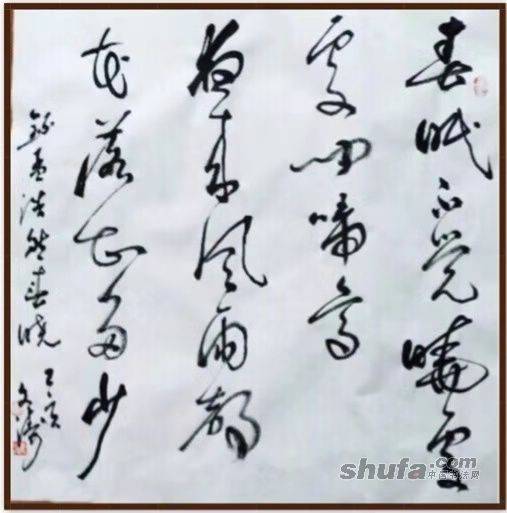 春眠不觉曉處
處闻啼鸟
夜来风雨声
花落知多少
録孟浩然春晓
shufa.com
中国书法网